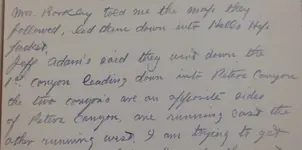 Mrs. Rockley told me the maps they
followed, led them down into Halls Hyf
Jacket,
Jeff Adam's said they went down the
1st canyon leading down into Petroe Canyon
the two canyon's are on opposite sides
of Petroe Canyon, one running east the
other running west. I am trying to get